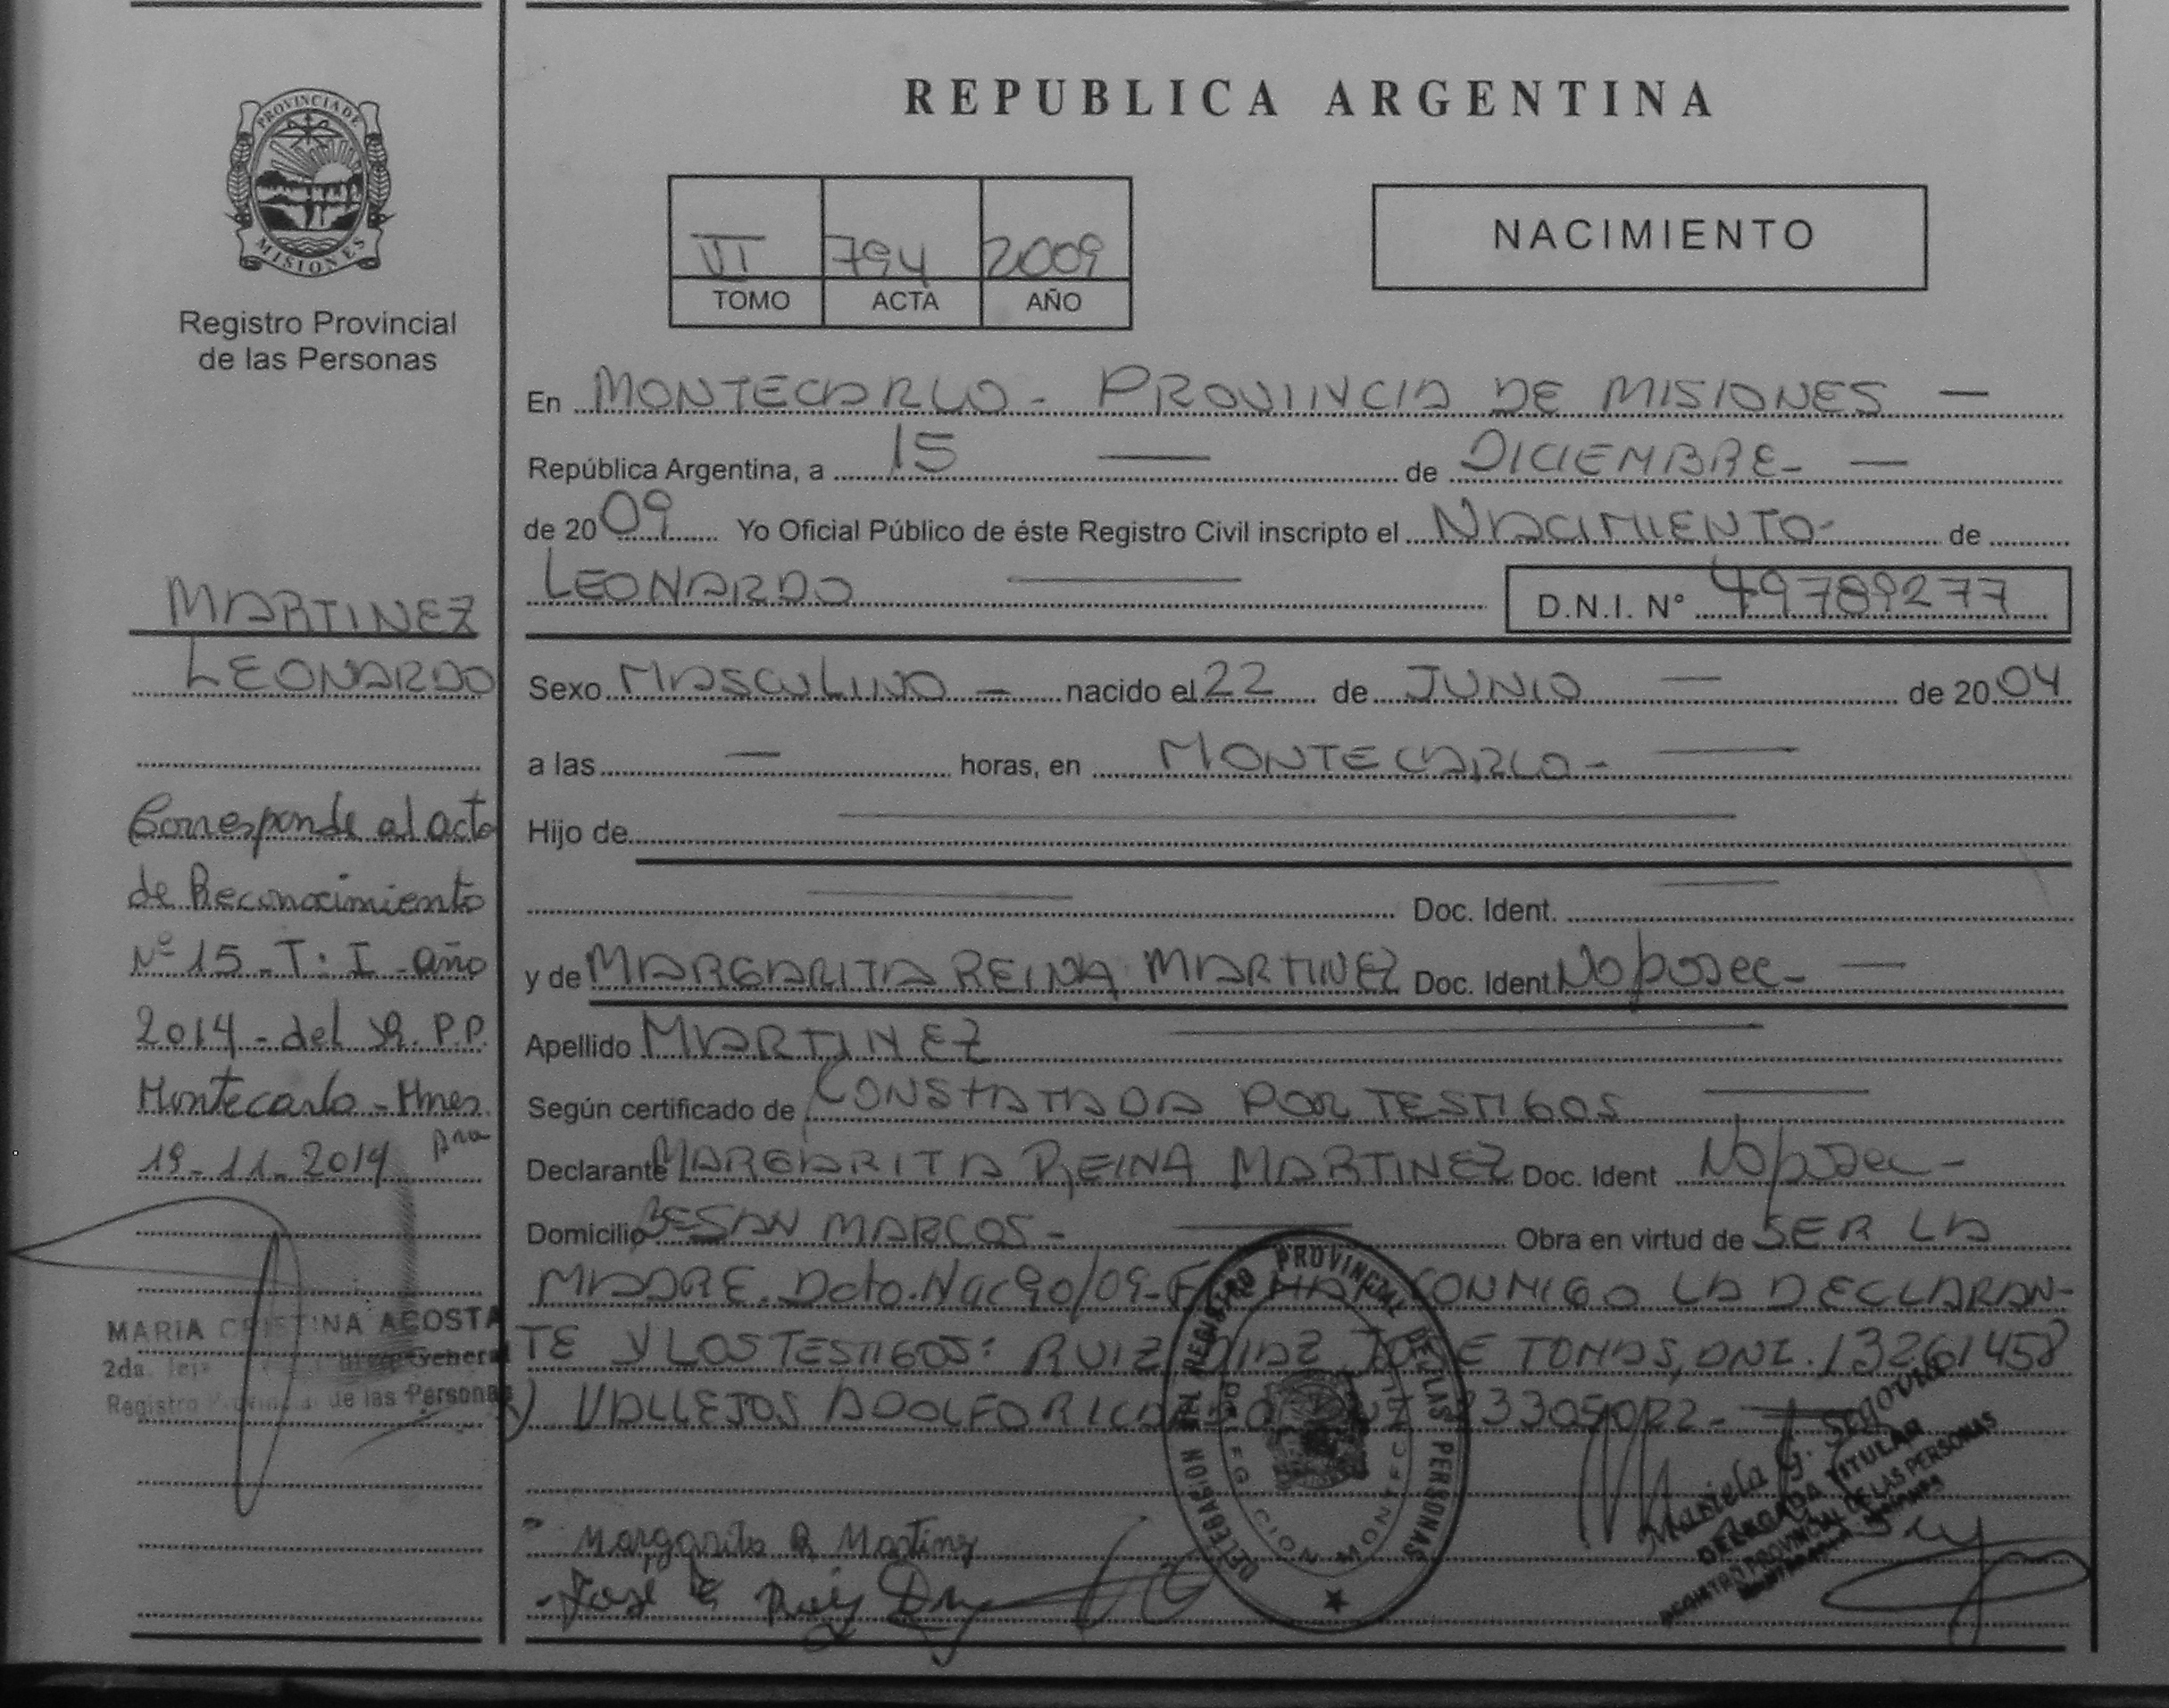 PROVINCIA DE
MISIONES
Registro Provincial
de las Personas
MARTINEZ
LEONARDO
Corresponde al acta
de Reconocimiento
Nº 15 - T. I - año
2014 - del R.P.P.
Montecarlo - Mnes.
19-11-2014
MARIA CRISTINA ACOSTA
2da.
General
Registro Provincial de las Personas
REPUBLICA ARGENTINA
VI 794 2009
TOMO ACTA AÑO
NACIMIENTO
En MONTECARLO - PROVINCIA DE MISIONES —
República Argentina, a 15 — de DICIEMBRE - —
de 2009 Yo Oficial Público de éste Registro Civil inscripto el NACIMIENTO - de
LEONARDO — D.N.I. Nº 49789277
Sexo MASCULINO — nacido el 22 de JUNIO — de 2004
a las — horas, en MONTECARLO - —
Hijo de —
— Doc. Ident. —
y de MARGARITA REINA MARTINEZ Doc. Ident No posee - —
Apellido MARTINEZ —
Según certificado de CONSTATADA POR TESTIGOS —
Declarante MARGARITA REINA MARTINEZ Doc. Ident No posee -
Domicilio Bº SAN MARCOS - — Obra en virtud de SER LA
MADRE. Dcto. Nac 90/09 - CONMIGO LA DECLARAN-
TE Y LOS TESTIGOS: RUIZ DIAZ JOSE TOMAS, DNI. 13261458
Y VALLEJOS ADOLFO RICARDO
Margarita R Martinez
José Ruiz
DELEGACION DEL REGISTRO PROVINCIAL DE LAS PERSONAS
Mariela G. Segovia
DELEGADA TITULAR
REGISTRO PROVINCIAL DE LAS PERSONAS